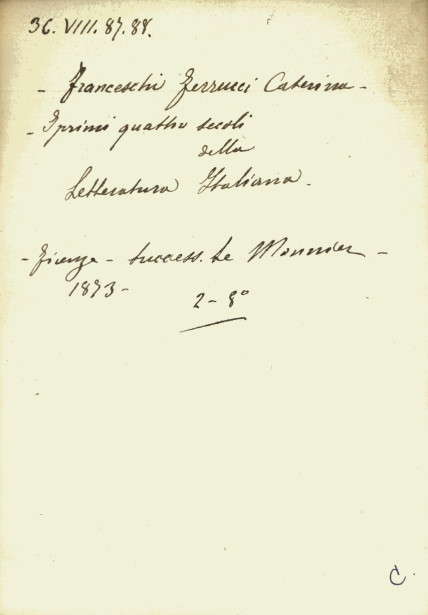 36. VIII. 87. 88.
- Franceschi Ferrucci Caterina -
- I primi quattro secoli
della
Letteratura Italiana -
- Firenze - success. Le Monnier -
1873 -
2 - 8°
C.